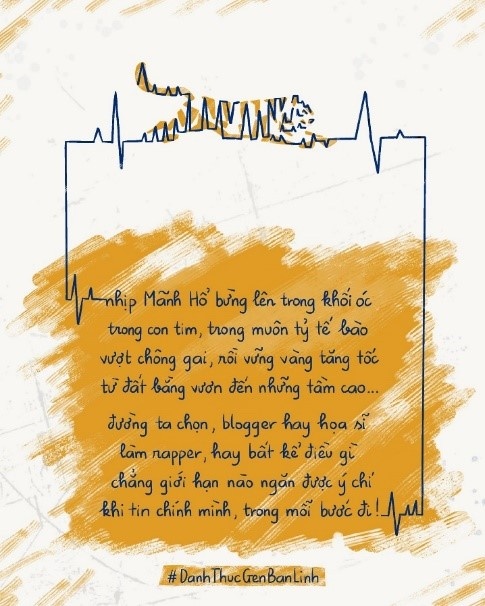 nhịp Mãnh Hổ bừng lên trong khối óc
trong con tim, trong muôn tỷ tế bào
vượt chông gai, rồi vững vàng tăng tốc
từ đất bằng vươn đến những tầm cao...
đường ta chọn, blogger hay họa sĩ
làm rapper, hay bất kể điều gì
chẳng giới hạn nào ngăn được ý chí
khi tin chính mình, trong mỗi bước đi!
#DanhThucGenBanLinh